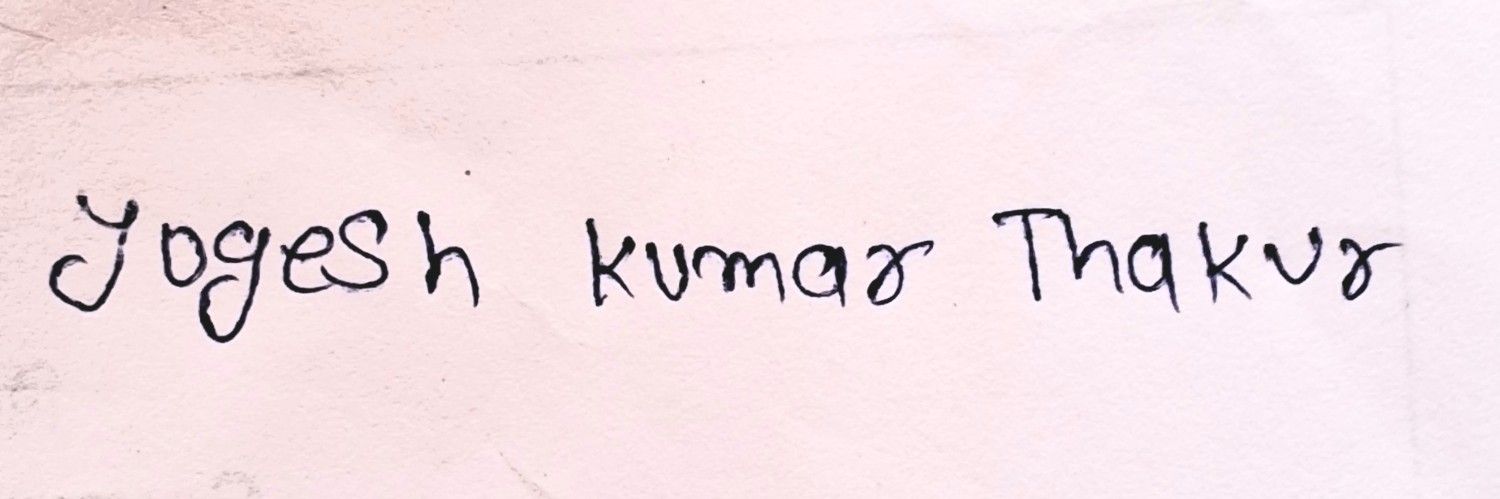 Yogesh kumar Thakur